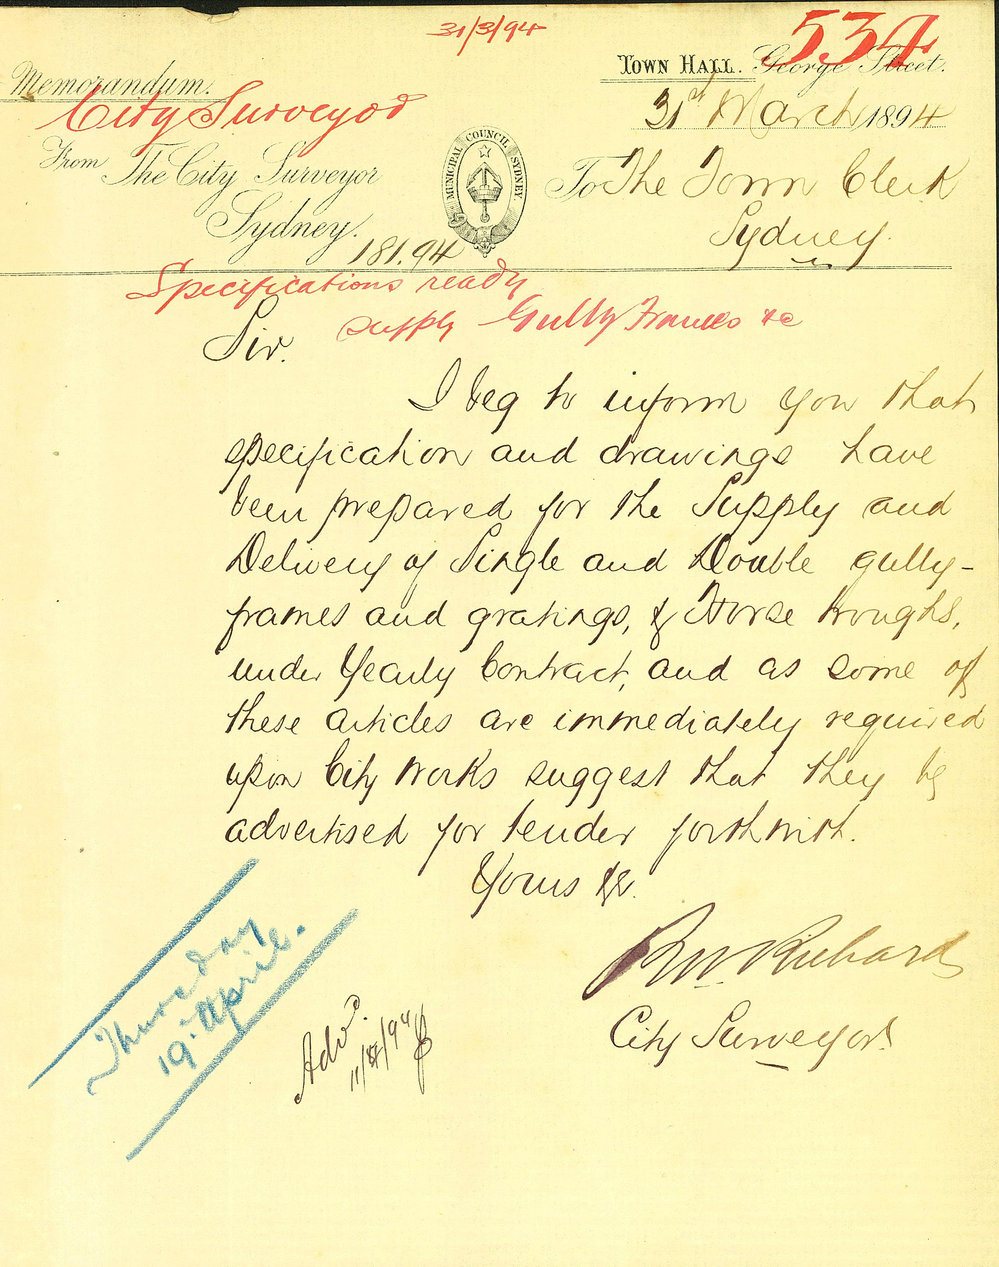 31/3/94
534
Memorandum.
TOWN HALL. George Street.
City Surveyor
31st March 1894
From The City Surveyor
Sydney.
MUNICIPAL COUNCIL SYDNEY.
To The Town Clerk
Sydney.
181.94
Specifications ready
supply Gully Frames &c
Sir.
I beg to inform you that
specification and drawings have
been prepared for the Supply and
Delivery of Single and Double gully-
frames and gratings, & Horse troughs,
under Yearly Contract, and as some of
these articles are immediately required
upon City Works suggest that they be
advertised for tender forthwith.
Yours &c.
RW Richards
City Surveyor.
Thursday
19. April.
Advd.
11/4/94